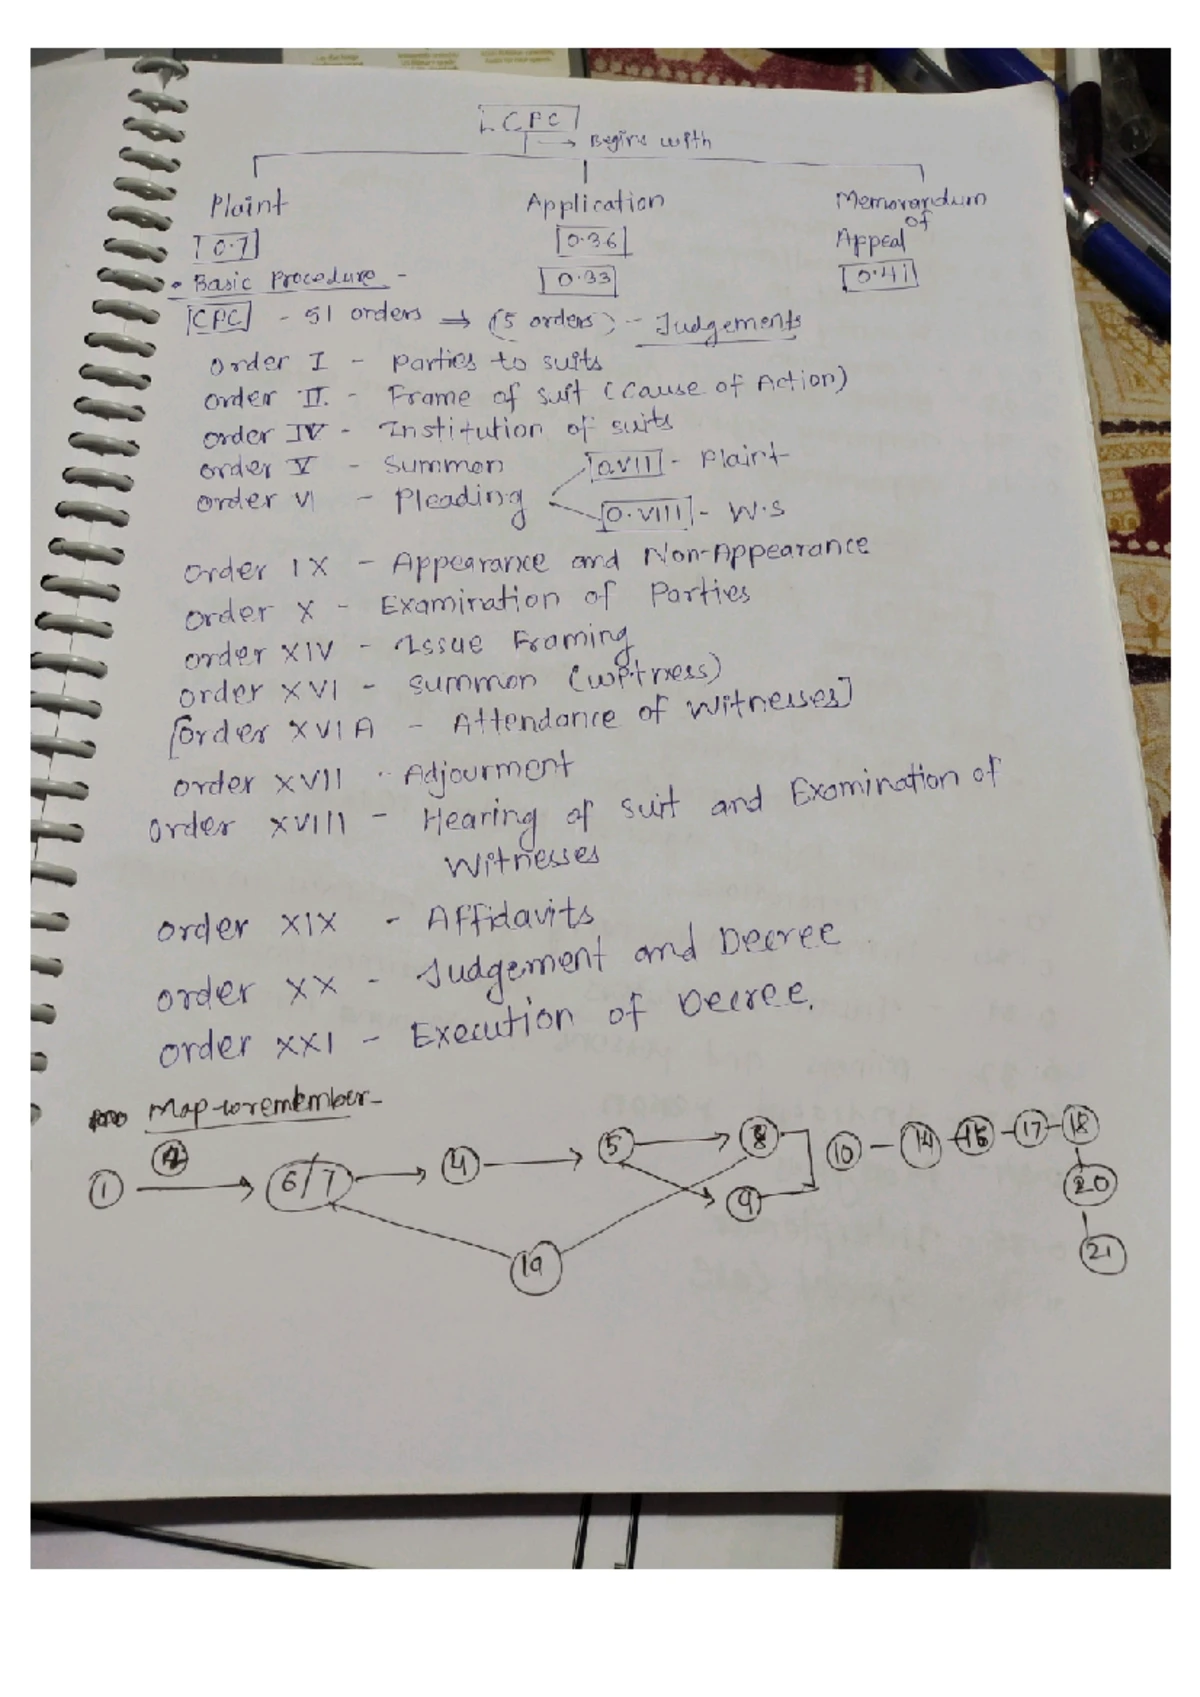 CPC
→ Begins with
Plaint Application Memorandum of Appeal
O.7 O.36 O.41
O.33
• Basic Procedure -
CPC - 51 orders → (5 orders) - Judgements
Order I - parties to suits
order II. - Frame of suit (Cause of Action)
order IV - Institution of suits
order V - Summon
order VI - Pleading
O.VII - Plaint
O.VIII - W.S
order IX - Appearance and Non-Appearance
order X - Examination of Parties
order XIV - Issue Framing
order XVI - summon (witness)
[order XVI A - Attendance of Witnesses]
order XVII - Adjourment
order XVIII - Hearing of suit and Examination of
Witnesses
order XIX - Affidavits
order XX - Judgement and Decree
order XXI - Execution of Decree.
Map to remember -
1 → 6/7 → 4 → 5 → 8 10 - 14 - 16 - 17 - 18
9 20
19 21